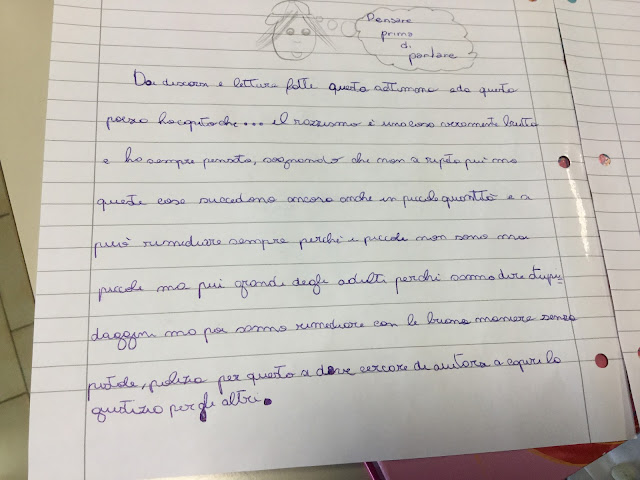 Pensare
prima
di
parlare
Da discorsi e lettura fatte questa settimana e da questa
poesia ho capito che... il razzismo è una cosa veramente brutta
e ho sempre pensato, sognando che non si ripeta più ma
queste cose succedono ancora anche in piccole quantità e si
può rimediare sempre perché i piccoli non sono mai
piccoli ma più grandi degli adulti perché sanno dire stupi=
daggini ma poi sanno rimediare con le buone maniere senza
pistole, polizia per questo si deve cercare di aiutarsi a capire la
giustizia per gli altri.